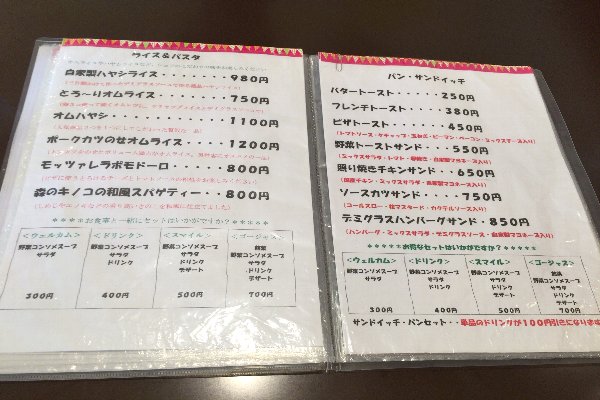 ライス&パスタ
自家製ハヤシライス・・・・・・・980円
とろ～りオムライス・・・・・・・750円
オムハヤシ・・・・・・・・・・1100円
ポークカツのせオムライス・・・1200円
モッツァレラポモドーロ・・・・・800円
森のキノコの和風スパゲティー・・800円
お食事と一緒にセットはいかがですか?
<ウェルカム>
野菜コンソメスープ
サラダ
300円
<ドリンク>
野菜コンソメスープ
サラダ
ドリンク
400円
<スマイル>
野菜コンソメスープ
サラダ
ドリンク
デザート
500円
<ゴージャス>
前菜
野菜コンソメスープ
サラダ
ドリンク
デザート
700円
パン・サンドイッチ
バタートースト・・・・・250円
フレンチトースト・・・・380円
ピザトースト・・・・・・450円
(トマトソース・ケチャップ・玉ねぎ・ピーマン・ベーコン・ミックスチーズ入り)
野菜トーストサンド・・・・550円
(ミックスサラダ・トマト・自家製マヨネーズ入り)
照り焼きチキンサンド・・・・650円
(国産チキン・ミックスサラダ・自家製マヨネーズ入り)
ソースカツサンド・・・・750円
(コールスロー・粒マスタード・カクテルソース入り)
デミグラスハンバーグサンド・850円
(ハンバーグ・ミックスサラダ・デミグラスソース・自家製マヨネーズ入り)
お得なセットはいかがですか?
<ウェルカム>
野菜コンソメスープ
サラダ
300円
<ドリンク>
野菜コンソメスープ
サラダ
ドリンク
400円
<スマイル>
野菜コンソメスープ
サラダ
ドリンク
デザート
500円
<ゴージャス>
前菜
野菜コンソメスープ
サラダ
ドリンク
デザート
700円
サンドイッチ・パンセット・・単品のドリンクが100円引きになります